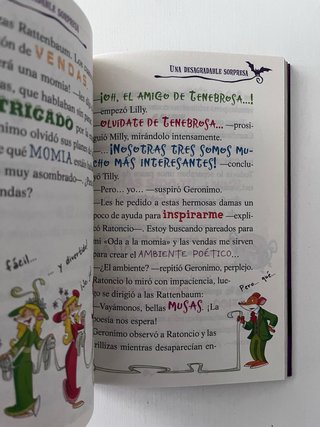 RADABLE SORPRESA
zas Rattenbaum. Los
ión de VENDAS
erá una momia!
as, que hablaban
TRIGADO por
nimo olvidó sus planes
e qué MOMIA están
muy asombrado—. ¿Para
endas?
fácil...
... y divertido!
UNA DESAGRADABLE SORPRESA
—¡OH, EL AMIGO DE TENEBROSA...!
—empezó Lilly.
—OLVÍDATE DE TENEBROSA... —prosi-
guió Milly, mirándolo intensamente.
—... ¡NOSOTRAS TRES SOMOS MU-
CHO MÁS INTERESANTES! —conclu-
yó Tilly.
—Pero… yo… —suspiró Geronimo.
—Les he pedido a estas hermosas damas un
poco de ayuda para inspirarme —expli-
có Ratoncio—. Estoy buscando pareados para
mi «Oda a la momia» y las vendas me sirven
para crear el AMBIENTE POÉTICO...
—¿El ambiente? —repitió Geronimo, perplejo.
Ratoncio lo miró con impaciencia, lue-
go se dirigió a las Rattenbaum:
—Vayámonos, bellas MUSAS. ¡La
poesía nos espera!
Geronimo observó a Ratoncio y las
trillizas mientras desaparecían en-
Pero... qué...